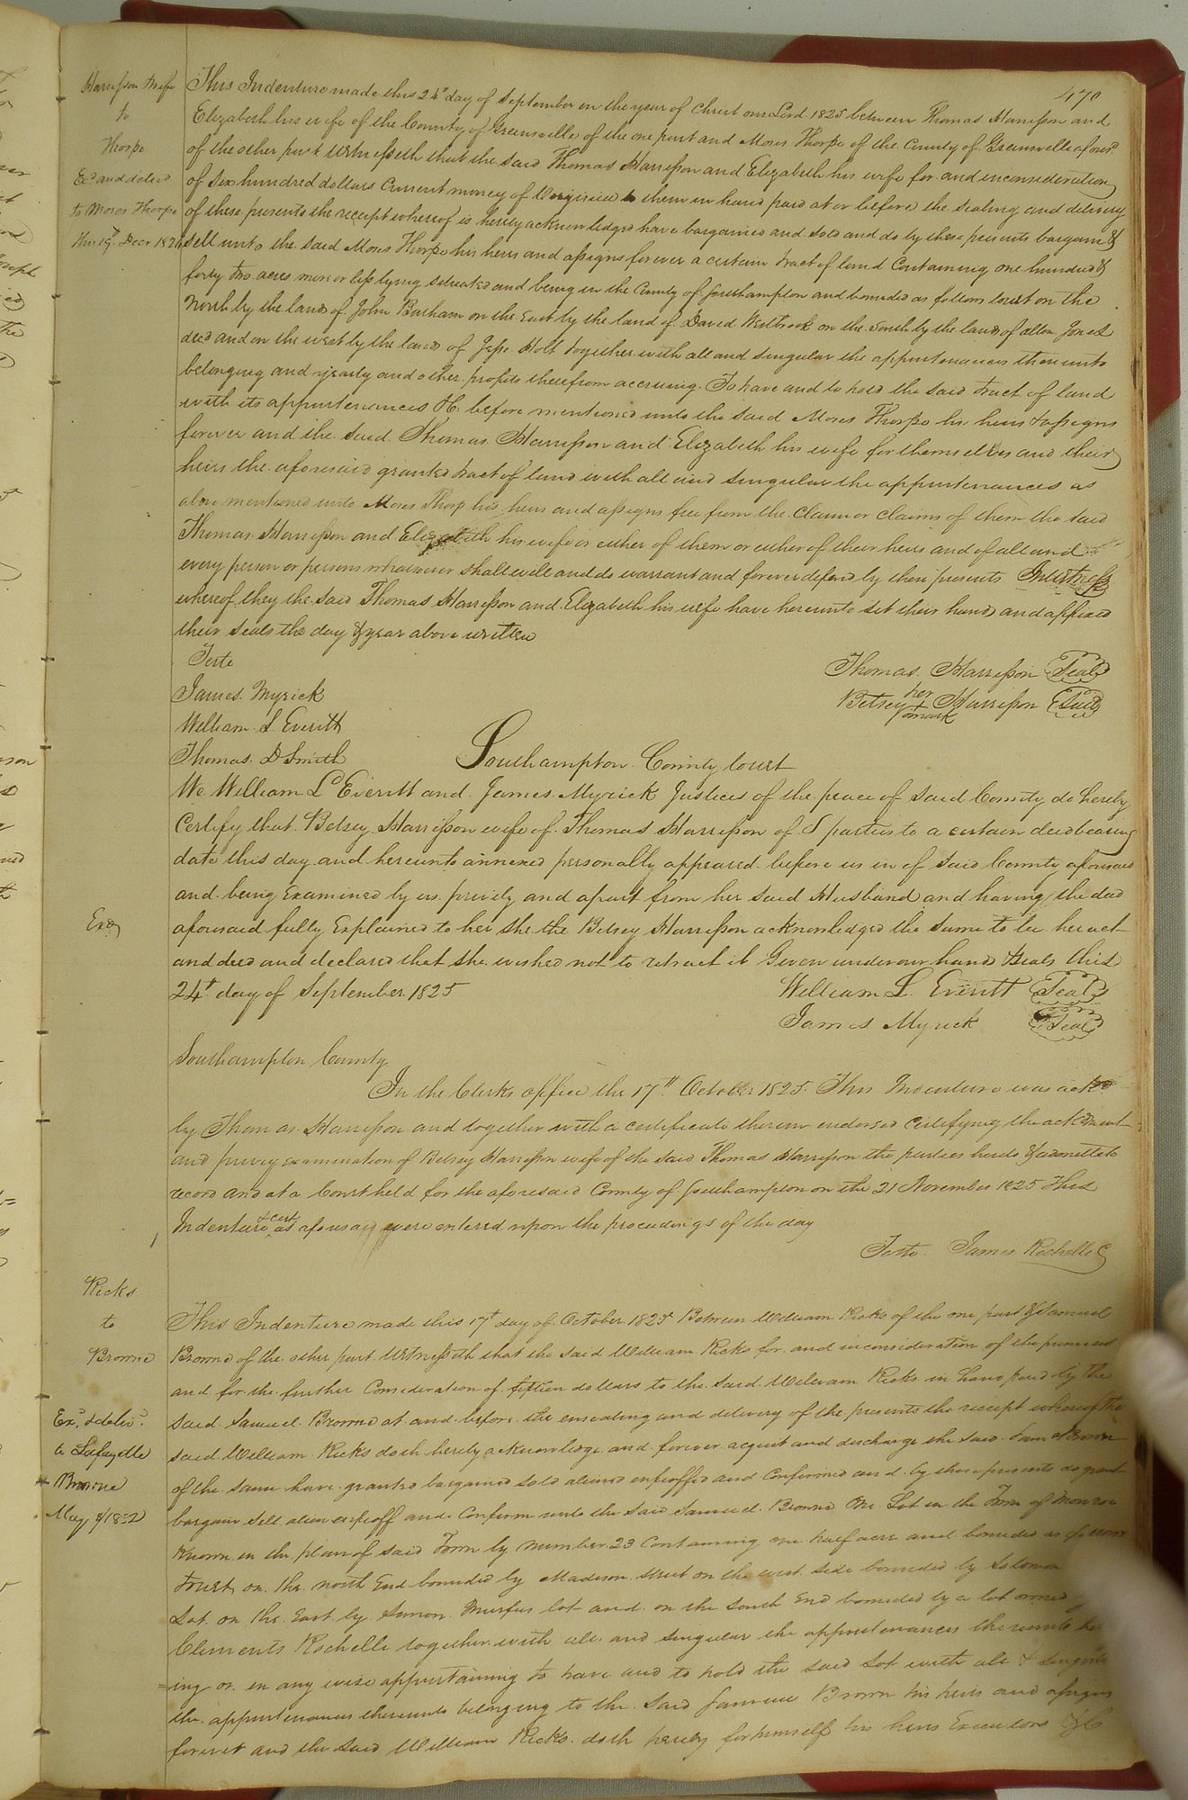 470
Harrisson & wife
to
Thorpe
Exd. and deled.
to Moses Thorpe
this 19th Decr 1826
This Indenture made this 24th day of September in the year of Christ our Lord 1825 between Thomas Harrisson and
Elizabeth his wife of the County of Greensville of the one part and Moses Thorpe of the County of Greensville aforesd.
of the other part Witnesseth that the said Thomas Harrisson and Elizabeth his wife for and in consideration
of six hundred dollars Current money of Virginia to them in hand paid at or before the sealing and delivery
of these presents the receipt whereof is hereby acknowledges have bargained and sold and do by these presents bargain &
sell unto the said Moses Thorpe his heirs and assigns forever a certain tract of land Containing one hundred &
forty two acres more or less lying situated and being in the County of Southampton and bounded as follows towit on the
North by the lands of John Barham on the East by the land of David Westbrook on the South by the lands of allen Jones
decd and on the west by the lands of Jesse Holt together with all and singular the appurtenances thereunto
belonging and yearly and other profits therefrom accruing. To have and to hold the said tract of land
with its appurtenances &c before mentioned unto the said Moses Thorpe his heirs & assigns
forever and the said Thomas Harrisson and Elizabeth his wife for themselves and their
heirs the aforesaid granted tract of land with all and singular the appurtenances as
above mentioned unto Moses Thorp his heirs and assigns free from the Claim or claims of them the said
Thomas Harrisson and Elizabeth his wife or either of them or either of their heirs and of all and
every person or persons whatsoever shall will and do warrant and forever defend by these presents In witness
whereof they the said Thomas Harrisson and Elizabeth his wife have hereunto set their hands and affixed
their seals the day & year above written
Teste
Thomas Harrisson Seal
James Myrick
her
Betsey + Harrisson Seal
mark
William L Everitt
Thomas D Smith
Southampton County Court
We William L Everitt and James Myrick Justices of the peace of said County do hereby
Certify that Betsey Harrisson wife of Thomas Harrisson of S parties to a certain deed bearing
date this day and hereunto annexed personally appeared before us in of said County aforesaid
and being Examined by us privily and apart from her said Husband and having the deed
Exd
aforesaid fully Explained to her she the Betsey Harrisson acknowledged the same to be her act
and deed and declared that she wished not to retract it Given under our hands & seals this
24th day of September 1825
William L. Everitt Seal
James Myrick Seal
Southampton County
In the Clerks office the 17th October 1825. This Indenture was ackd
by Thomas Harrisson and together with a certificate thereon endorsed Certifying the ackdment
and privy examination of Betsey Harrisson wife of the said Thomas Harrisson the parties hereto & admitted to
record and at a Court held for the aforesaid County of Southampton on the 21 November 1825 This
Indenture & cert as aforesaid were entered upon the proceedings of the day
Teste James Rochelle C
Ricks
to
Browne
Exd. & deled.
to Lafayette
Browne
May 9/1832
This Indenture made this 17th day of October 1825 Between William Ricks of the one part & Samuel
Browne of the other part Witnesseth that the said William Ricks for and in consideration of the premises
and for the further Consideration of fifteen dollars to the said William Ricks in hand paid by the
said Samuel Browne at and before the ensealing and delivery of the presents the receipt whereof the
said William Ricks doth hereby acknowledge and forever acquit and discharge the said Saml Brown
of the same have granted bargained sold aliened enfeoffed and Confirmed and by these presents do grant
bargain sell alien enfeoff and Confirm unto the said Samuel Browne One Lot in the Town of Monroe
known in the plan of said Town by number 23 Containing one half acre and bounded as follows
towit on the north End bounded by Madison street on the west side bounded by Solomon
Lot on the East by Simon Murfees lot and on the South End bounded by a lot owned
Clements Rochelle together with all and singular the appurtenances thereunto be
ing or in any wise appertaining to have and to hold the said Lot with all & singular
the appurtenances thereunto belonging to the said Samuel Brown his heirs and assigns
forever and the said William Ricks doth hereby for himself his heirs Executors &C